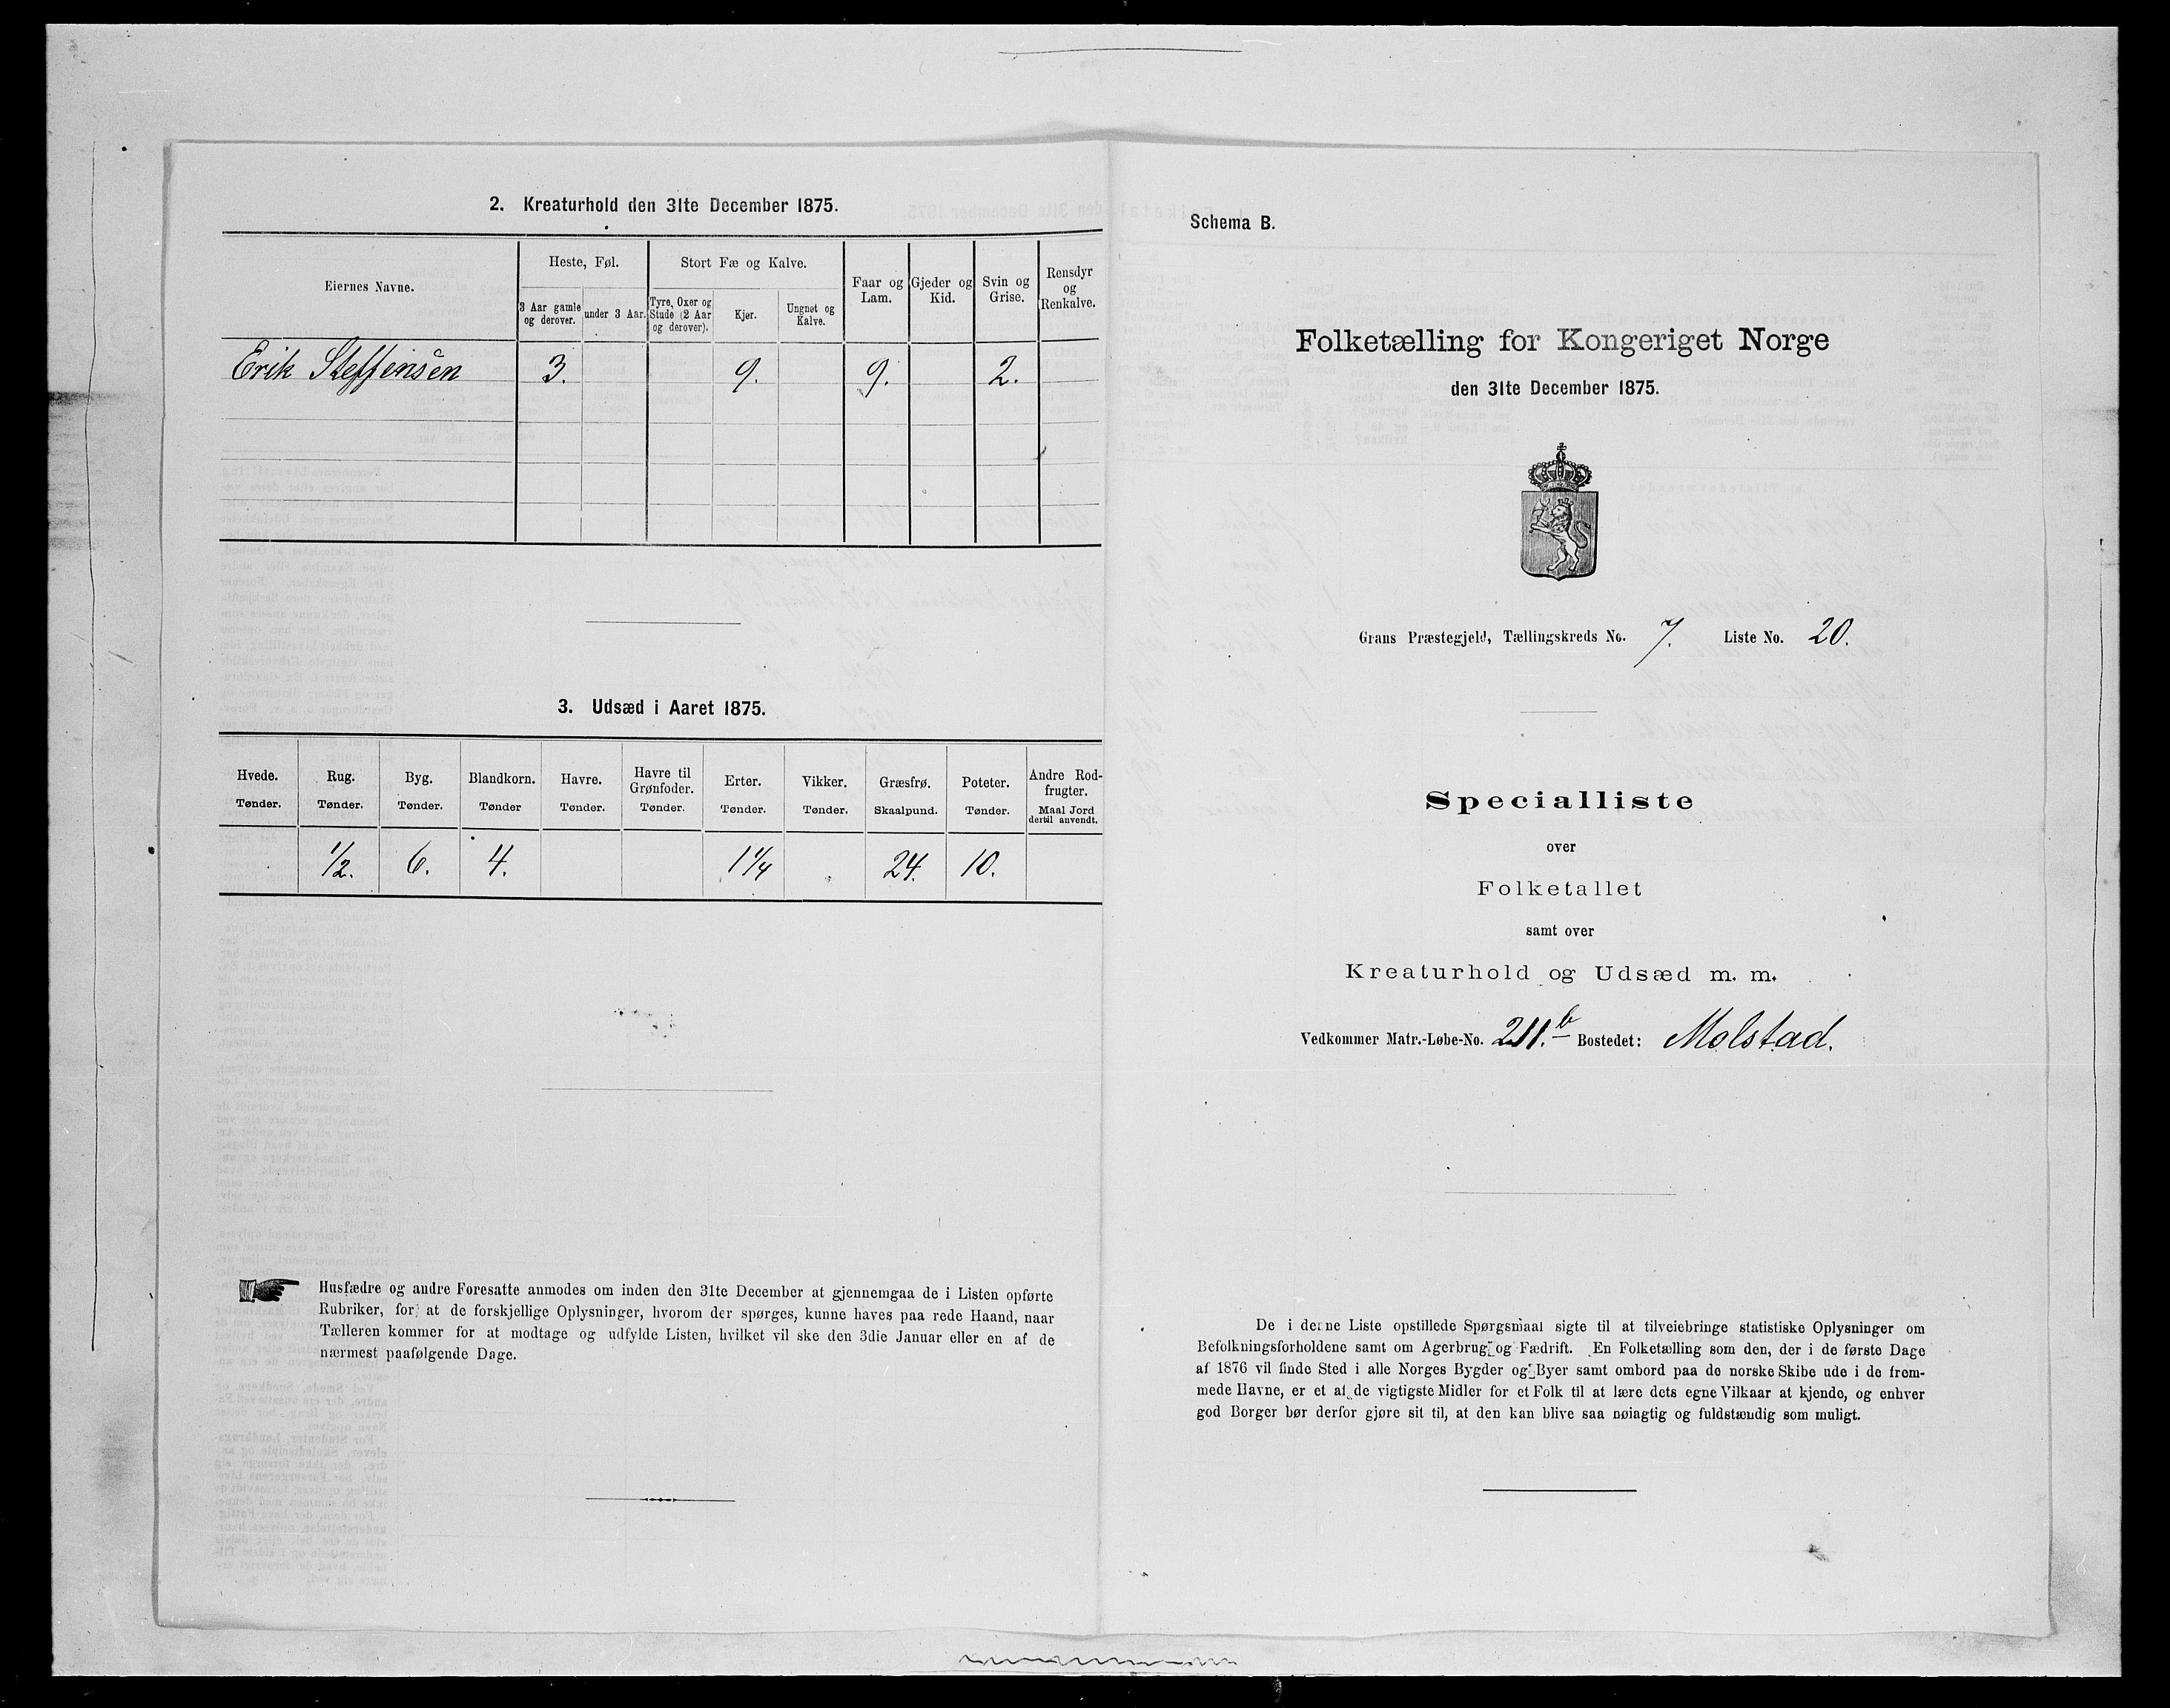 2. Kreaturhold den 31te December 1875.
Eiernes Navne.
Heste, Føl.
Stort Fæ og Kalve.
Faar og Lam.
Gjeder og Kid.
Svin og Grise.
Rensdyr og Renkalve.
3 Aar gamle og derover.
under 3 Aar.
Tyre, Oxer og Stude (2 Aar og derover).
Kjør.
Ungnøt og Kalve.
Erik Steffensen 3. 9. 9. 2.
3. Udsæd i Aaret 1875.
Hvede. Rug. Byg. Blandkorn. Havre. Havre til Grønfoder. Erter. Vikker. Græsfrø. Poteter. Andre Rod-frugter.
Tønder. Tønder. Tønder. Tønder Tønder. Tønder. Tønder. Tønder. Skaalpund. Tønder. Maal Jord dertil anvendt.
1/2. 6. 4. 1 1/4 24. 10.
Husfædre og andre Foresatte anmodes om inden den 31te December at gjennemgaa de i Listen opførte
Rubriker, for at de forskjellige Oplysninger, hvorom der spørges, kunne haves paa rede Haand, naar
Tælleren kommer for at modtage og udfylde Listen, hvilket vil ske den 3die Januar eller en af de
nærmest paafølgende Dage.
Schema B.
Folketælling for Kongeriget Norge
den 31te December 1875.
Grans Præstegjeld, Tællingskreds No. 7. Liste No. 20.
Specialliste
over
Folketallet
samt over
Kreaturhold og Udsæd m. m.
Vedkommer Matr.-Løbe-No. 211.b Bostedet: Molstad.
De i denne Liste opstillede Spørgsmaal sigte til at tilveiebringe statistiske Oplysninger om
Befolkningsforholdene samt om Agerbrug og Fædrift. En Folketælling som den, der i de første Dage
af 1876 vil finde Sted i alle Norges Bygder og Byer samt ombord paa de norske Skibe ude i de frem-
mede Havne, er et af de vigtigste Midler for et Folk til at lære dets egne Vilkaar at kjende, og enhver
god Borger bør derfor gjøre sit til, at den kan blive saa nøiagtig og fuldstændig som muligt.